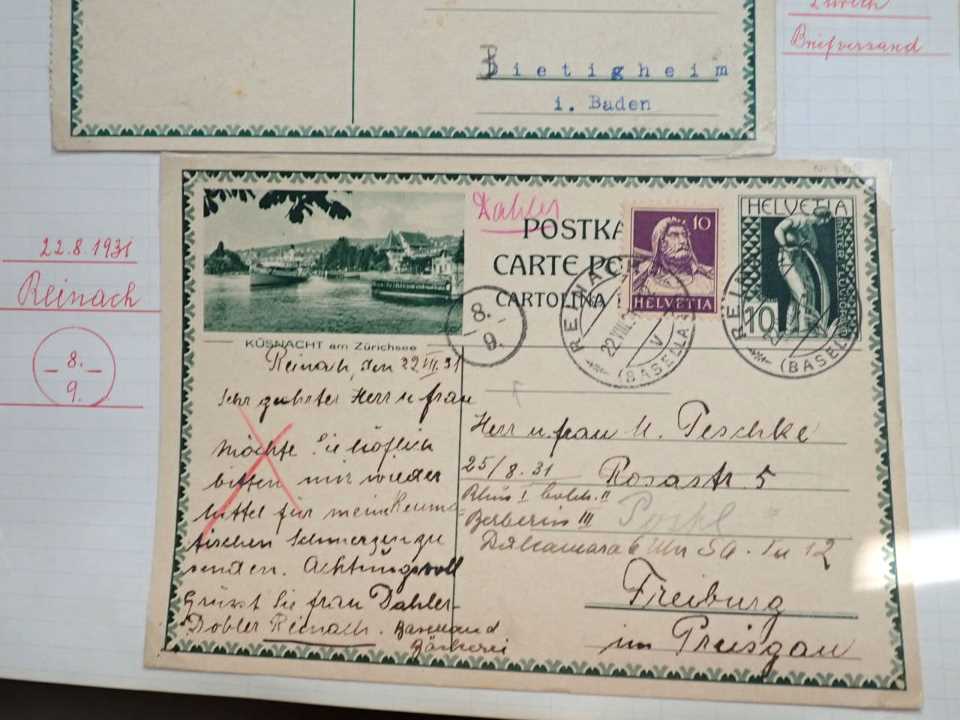 Zürich
Briefversand
Bietigheim
i. Baden
22.8.1931
Reinach
8.
9.
Dahler
POSTKA
CARTE PO
CARTOLINA
10
HELVETIA
HELVETIA
10
REINACH
22.VIII.
V
(BASELLA
REIN
(BASELLA
8.
9.
KÜSNACHT am Zürichsee
Reinach, den 22 VIII. 31
Sehr geehrter Herr u frau
möchte Sie höflich
bitten mir wieder
mittel für mein Reuma-
tischen Schmerzen zu
senden. Achtungsvoll
Grüsst Sie frau Dahler-
Dobler Reinach. Baselland
Bäckerei
Herr u. frau M. Peschke
25/8.31
Rosastr. 5
Rhus I II
Berberis III
Dulcamara 6 12
Freiburg
im Preisgau